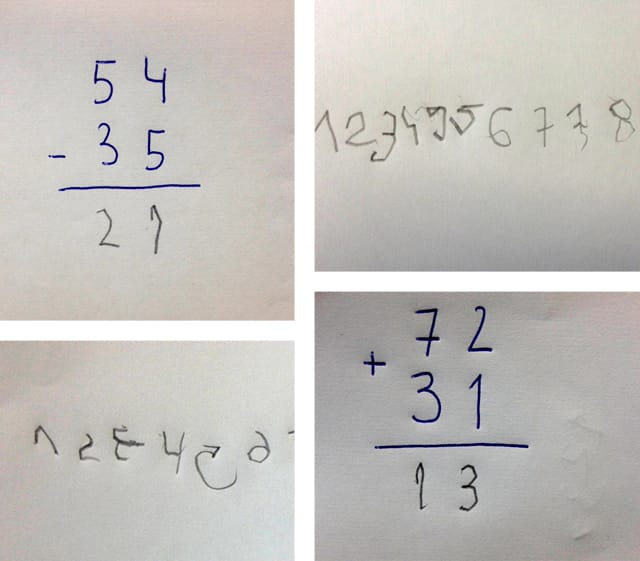 54
- 35
21
1 2 3 4 5 6 7 7 8
1 2 4
72
+ 31
13